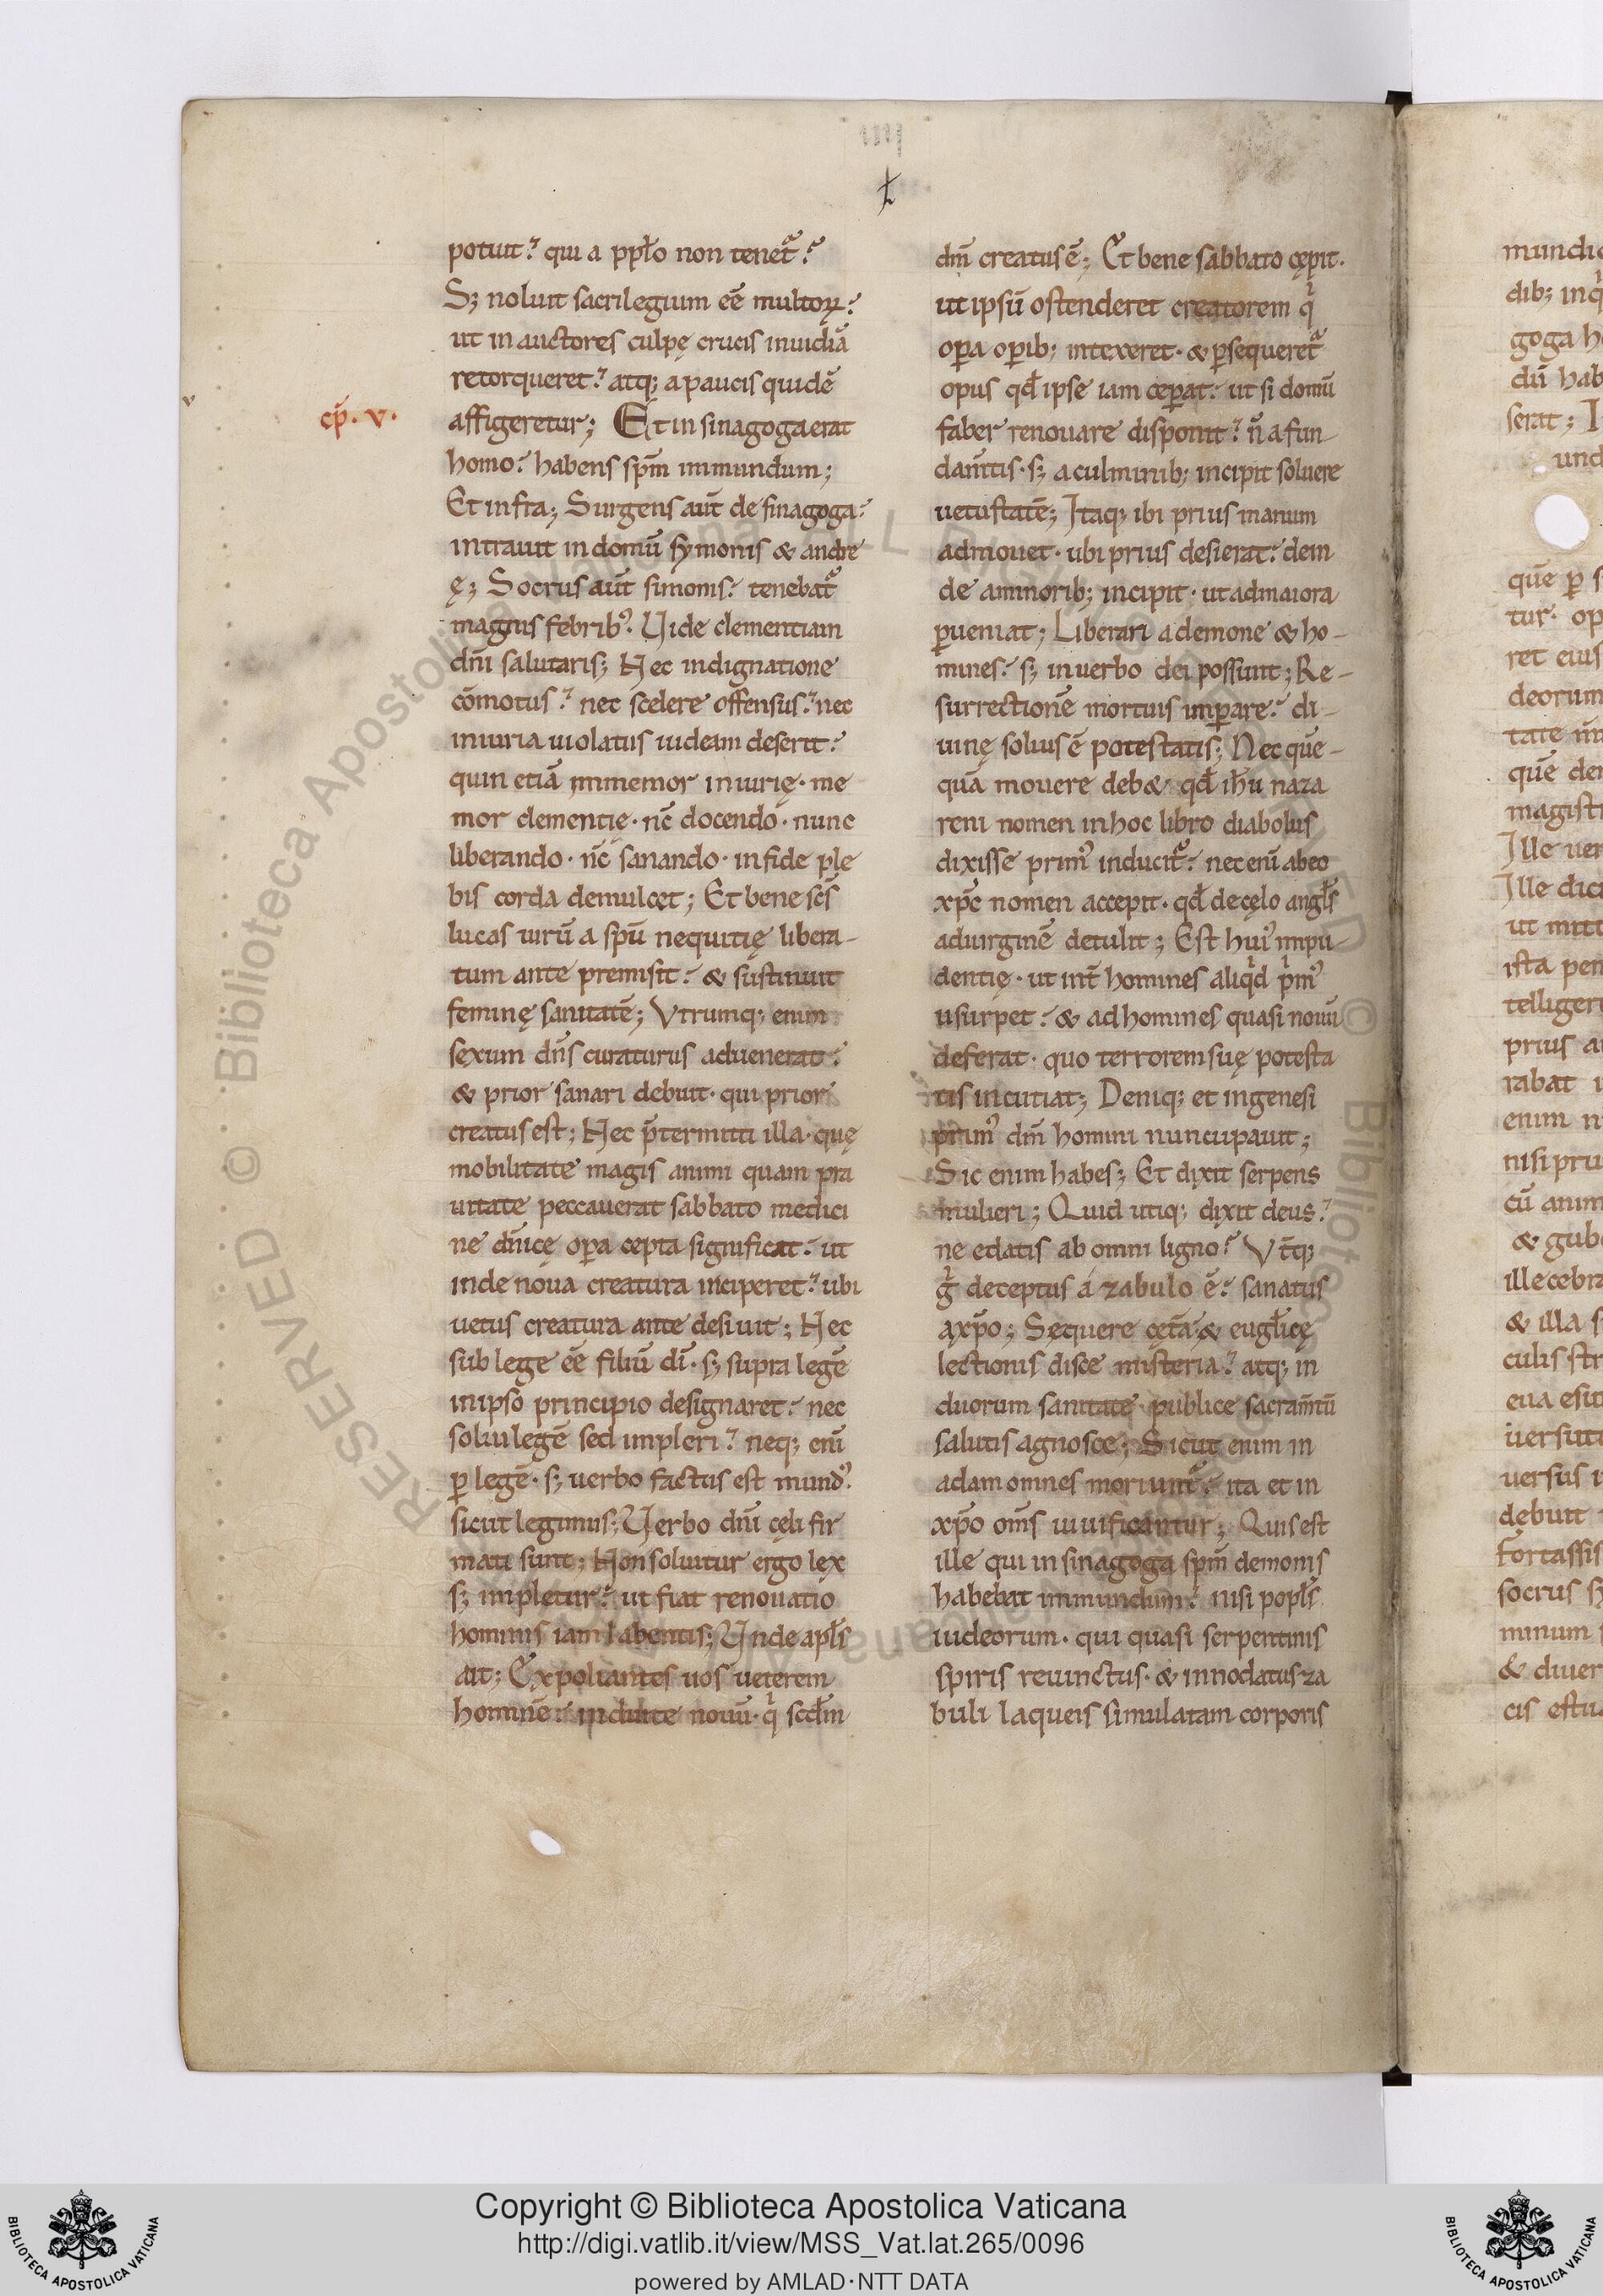 potuit? qui a pplo non tenet᷒?
S; noluit sacrilegium eē multoꝝ?
ut in auctores culpę crucis inuidiā
retorqueret? atq; a paucis quidē
cp̄. v. affigeretur; Et in sinagoga erat
homo? habens spm̄ immundum;
Et infra; Surgens aut̄ de sinagoga?
intrauit in domū symonis & andre
ę; Socrus aut̄ simonis? tenebat᷒
magnis febribꝰ. Uide clementiam
dn̄i salutaris; Nec indignatione
cōmotus? nec scelere offensus? nec
iniuria uiolatus iudeam deserit?
quin etiā immemor iniurię · me
mor clementię · nc̄ docendo · nunc
liberando · nc̄ sanando · infide ple
bis corda demulcet; Et bene scs̄
lucas uirū a spū nequitię libera-
tum ante premisit? & sustinuit
feminę sanitatē; Utrumq; enim
sexum dn̄s curaturus aduenerat?
& prior sanari debuit · qui prior
creatus est; Nec p̄termitti illa · quę
mobilitate magis animi quam pra
uitate peccauerat sabbato medici
nę dn̄icę oꝑa cepta significat? ut
inde noua creatura inciperet? ubi
uetus creatura ante desiuit; Nec
sub lege eē filiū dī · s; supra legē
in ipso principio designaret? nec
solui legē sed impleri? neq; eni̅
ꝑ legē · s; uerbo factus est mundꝰ?
sicut legimus; Uerbo dn̄i cęli fir
mati sunt; Non soluitur ergo lex
s; impletur? ut fiat renouatio
hominis iam labentis; Unde apl̄s
ait; Expoliantes uos ueterem
hominē? induite nouū · qͥ scd̄m
dm̄ creatus ē; Et bene sabbato cępit ·
ut ipsū ostenderet creatorem qͥ
oꝑa oꝑib; intexeret · & ꝑsequeret᷒
opus qd̄ ipse iam ceꝑat? ut si domū
faber renouare disponit? n̄ a fun-
dam̄tis · s; a culminib; incipit soluere
uetustatē; Itaq; ibi prius manum
admouet · ubi prius desierat? dein
de a minorib; incipit · ut ad maiora
ꝑueniat; Liberari a demone & ho-
mines? s; in uerbo dei possunt; Re-
surrectionē mortuis imꝑare? di-
uinę solius ē potestatis; Nec quē-
quā mouere deb& qd̄ ihū naza
reni nomen in hoc libro diabolus
dixisse primꝰ inducit᷒? nec eni̅ ab eo
xp̄c nomen accepit · qd̄ de cęlo angl̄s
ad uirginē detulit; Est huiꝰ impu-
dentię · ut int̄ homines aliqͥd pͥmꝰ
usurpet? & ad homines quasi nouū
deferat · quo terrorem suę potesta
tis incutiat; Deniq; et in genesi
primꝰ dm̄ homini nuncupauit;
Sic enim habes; Et dixit serpens
mulieri; Quid utiq; dixit deus?
ne edatis ab omni ligno? Ut̄q;
gͥ deceptus a zabulo ē? sanatus
a xp̄o; Sequere cęt̄a & eugl̄icę
lectionis disce misteria? atq; in
duorum sanitate publice sacram̄tū
salutis agnosce; Sicut enim in
adam omnes moriunt᷒? ita et in
xp̄o om̄s uiuificantur; Quis est
ille qui in sinagoga spm̄ demonis
habebat immundum? nisi popl̄s
iudeorum · qui quasi serpentinis
spiris reuinctus · & innodatus za
buli laqueis simulatam corporis
Copyright © Biblioteca Apostolica Vaticana
http://digi.vatlib.it/view/MSS_Vat.lat.265/0096
powered by AMLAD·NTT DATA